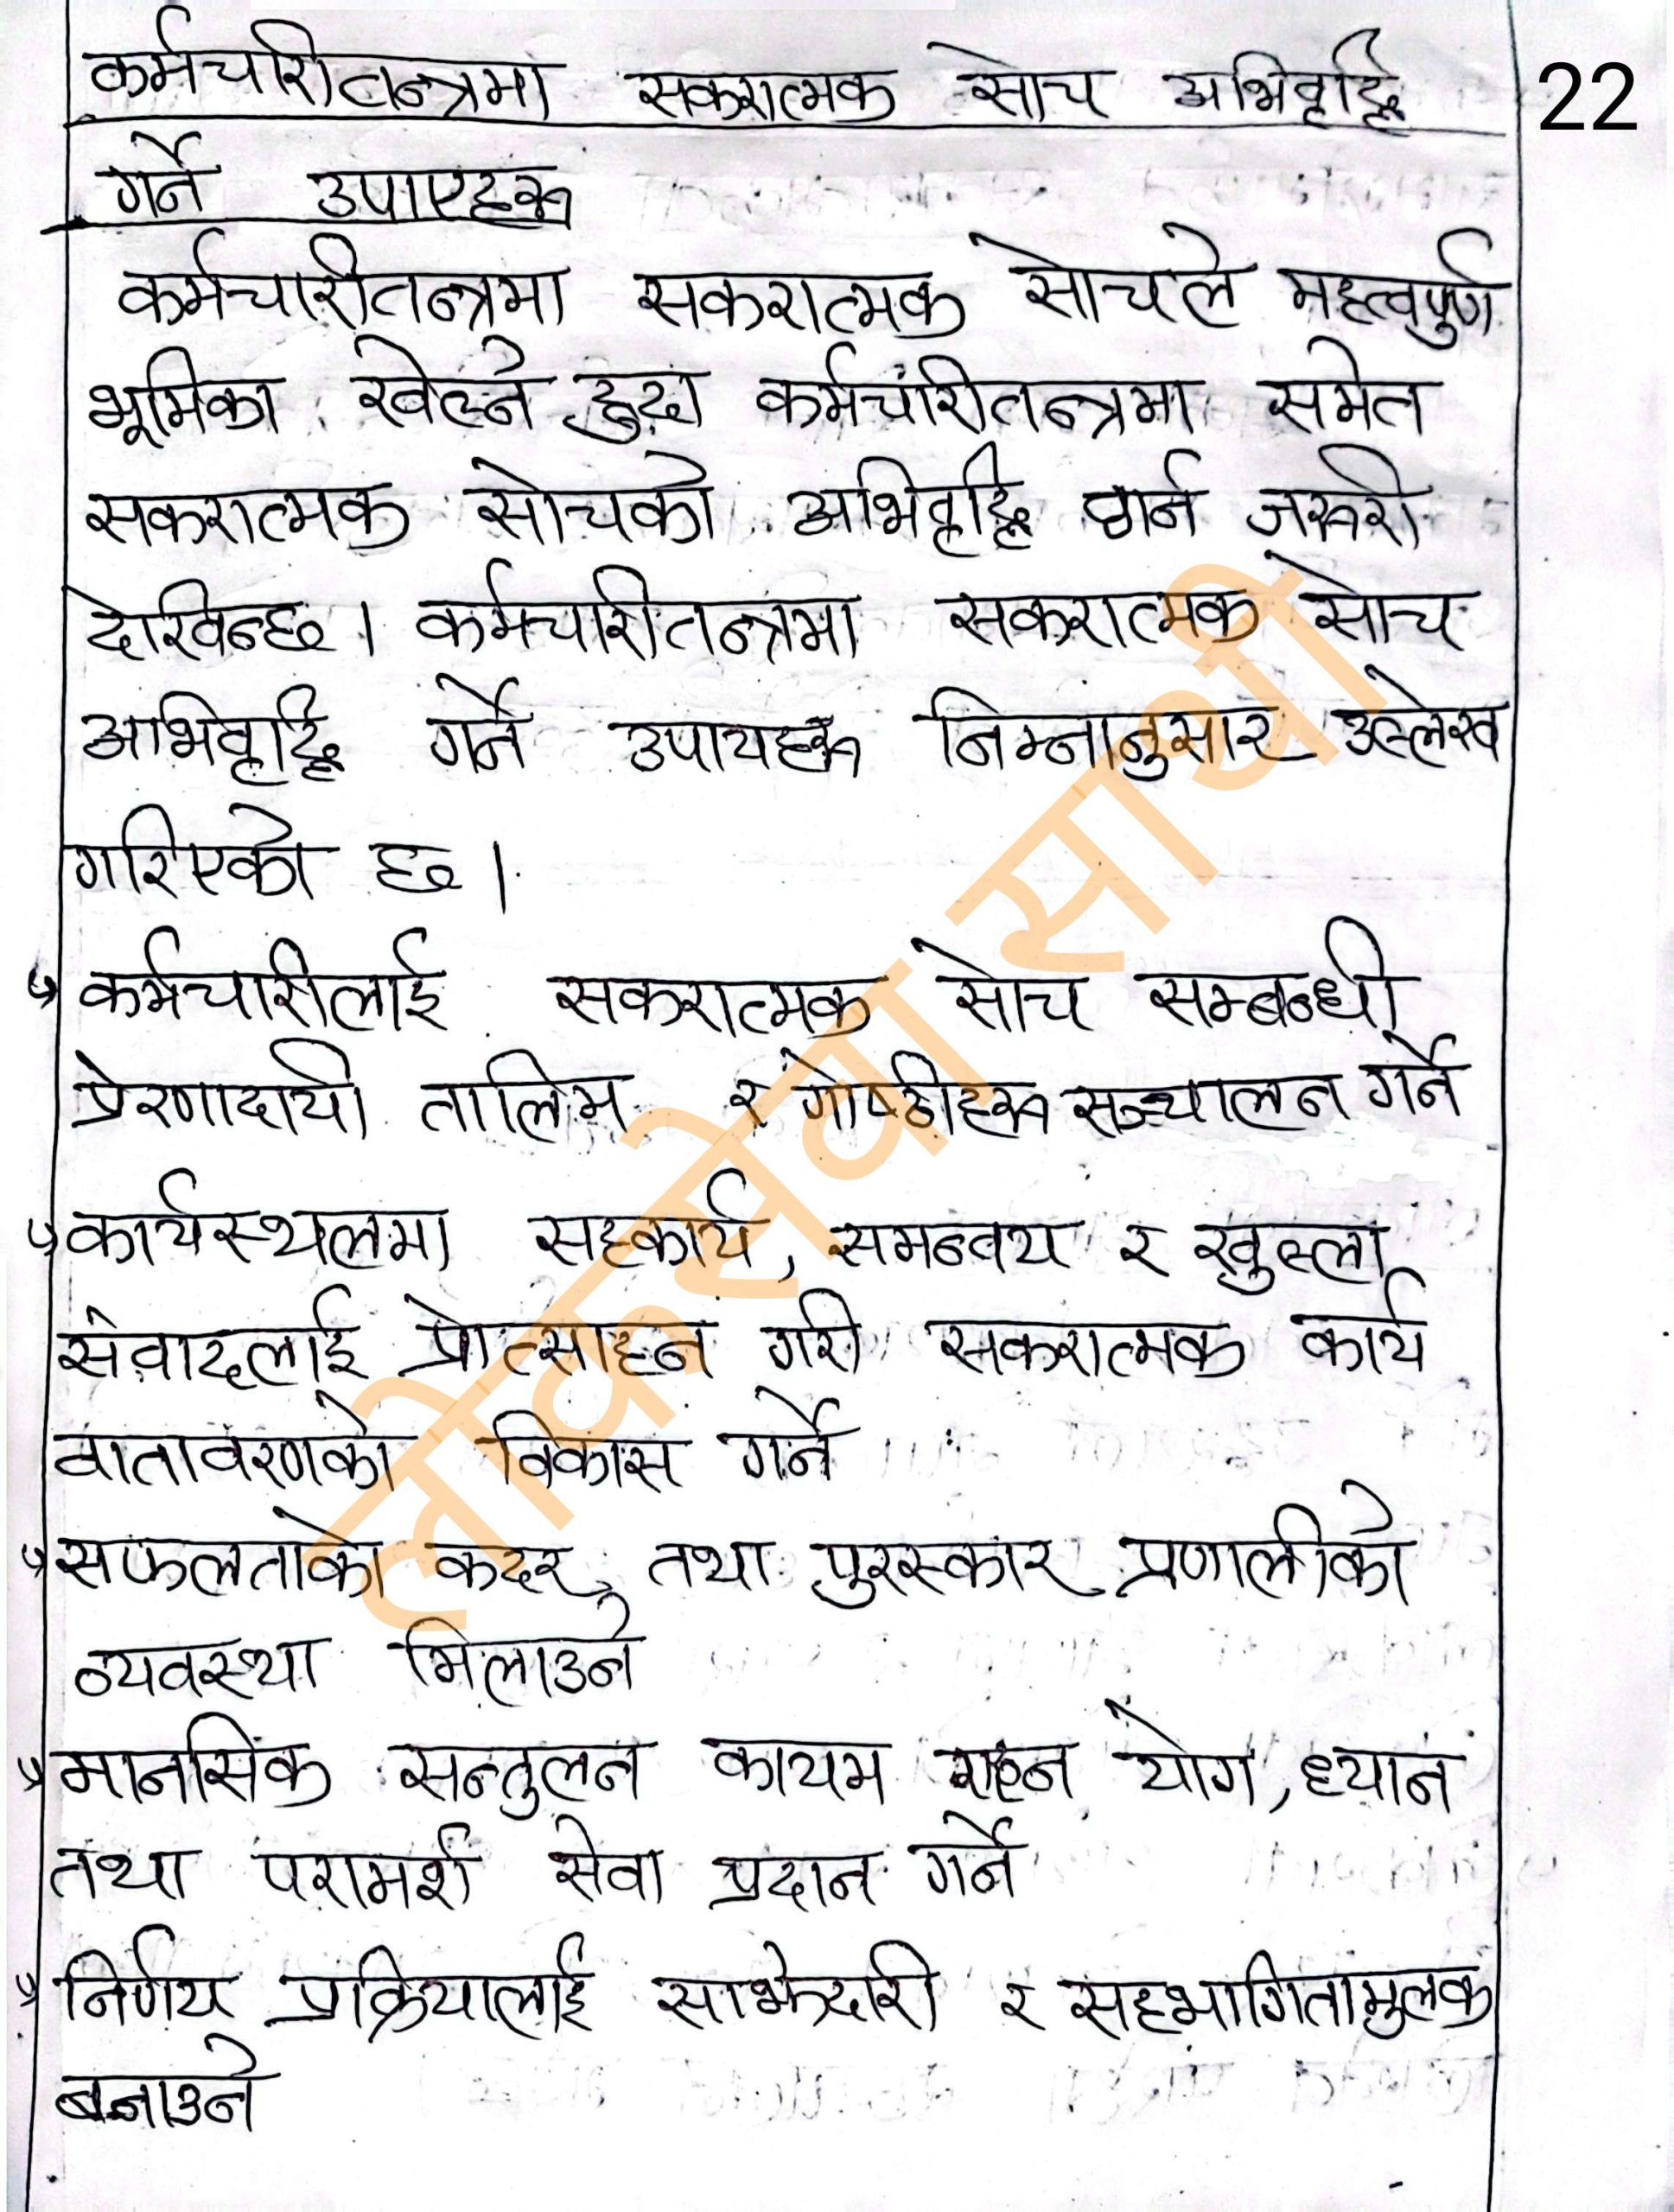 कर्मचारीतन्त्रमा सकरात्मक सोच अभिवृद्धि
22
गर्ने उपाएहरू
कर्मचारीतन्त्रमा सकरात्मक सोचले महत्वपुर्ण
भूमिका खेल्ने हुदा कर्मचारीतन्त्रमा समेत
सकरात्मक सोचको अभिवृद्धि गर्न जरूरी
देखिन्छ। कर्मचारीतन्त्रमा सकरात्मक सोच
अभिवृद्धि गर्ने उपायहरू निम्नानुसार उल्लेख
गरिएको छ।
कर्मचारीलाई सकरात्मक सोच सम्बन्धी
प्रेरणादायी तालिम र गोष्ठीहरू सञ्चालन गर्ने
कार्यस्थलमा सहकार्य, समन्वय र खुल्ला
संवादलाई प्रोत्साहन गरी सकरात्मक कार्य
वातावरणको विकास गर्ने
सफलताको कदर तथा पुरस्कार प्रणालीको
व्यवस्था मिलाउने
मानसिक सन्तुलन कायम राख्न योग, ध्यान
तथा परामर्श सेवा प्रदान गर्ने
निर्णय प्रक्रियालाई साझेदारी र सहभागितामुलक
बनाउने
लोकसेवा साथी